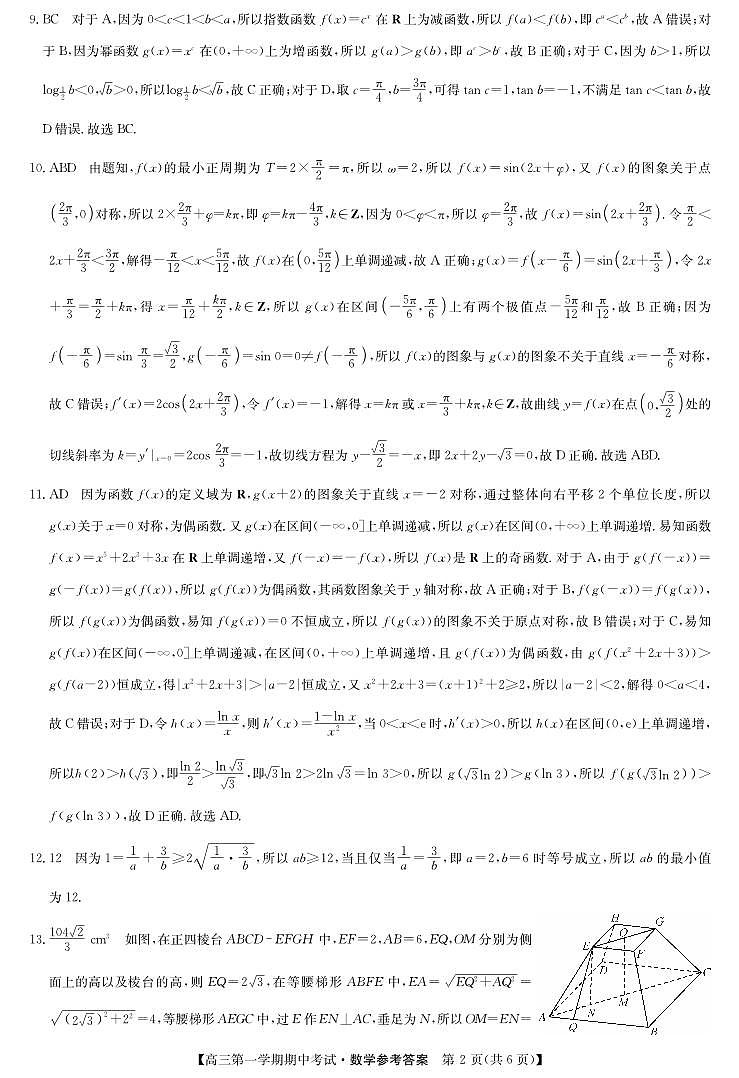 9. BC　对于 A,因为 0<c<1<b<a,所以指数函数 f(x)=cˣ 在 R 上为减函数,所以 f(a)<f(b),即 cᵃ<cᵇ,故 A 错误;对
于 B,因为幂函数 g(x)=xᶜ 在(0,+∞)上为增函数,所以 g(a)>g(b),即 aᶜ>bᶜ,故 B 正确;对于 C,因为 b>1,所以
log_{1/2} b<0,√b>0,所以log_{1/2} b<√b,故 C 正确;对于 D,取 c=π/4,b=3π/4,可得 tan c=1,tan b=−1,不满足 tan c<tan b,故
D 错误. 故选 BC.
10. ABD　由题知,f(x)的最小正周期为 T=2×π/2=π,所以 ω=2,所以 f(x)=sin(2x+φ),又 f(x)的图象关于点
(2π/3,0)对称,所以 2×2π/3+φ=kπ,即 φ=kπ−4π/3,k∈Z,因为 0<φ<π,所以 φ=2π/3,故 f(x)=sin(2x+2π/3). 令 π/2<
2x+2π/3<3π/2,解得−π/12<x<5π/12,故 f(x)在(0,5π/12)上单调递减,故 A 正确;g(x)=f(x−π/6)=sin(2x+π/3),令 2x
+π/3=π/2+kπ,得 x=π/12+kπ/2,k∈Z,所以 g(x)在区间(−5π/6,π/6)上有两个极值点−5π/12和π/12,故 B 正确;因为
f(−π/6)=sin π/3=√3/2,g(−π/6)=sin 0=0≠f(−π/6),所以 f(x)的图象与 g(x)的图象不关于直线 x=−π/6对称,
故 C 错误;f′(x)=2cos(2x+2π/3),令 f′(x)=−1,解得 x=kπ 或 x=π/3+kπ,k∈Z,故曲线 y=f(x)在点(0,√3/2)处的
切线斜率为 k=y′|ₓ₌₀=2cos 2π/3=−1,故切线方程为 y−√3/2=−x,即 2x+2y−√3=0,故 D 正确. 故选 ABD.
11. AD　因为函数 f(x)的定义域为 R,g(x+2)的图象关于直线 x=−2 对称,通过整体向右平移 2 个单位长度,所以
g(x)关于 x=0 对称,为偶函数. 又 g(x)在区间(−∞,0]上单调递减,所以 g(x)在区间(0,+∞)上单调递增. 易知函数
f(x)=x⁵+2x³+3x 在 R 上单调递增,又 f(−x)=−f(x),所以 f(x)是 R 上的奇函数. 对于 A,由于 g(f(−x))=
g(−f(x))=g(f(x)),所以 g(f(x))为偶函数,其函数图象关于 y 轴对称,故 A 正确;对于 B,f(g(−x))=f(g(x)),
所以 f(g(x))为偶函数,易知 f(g(x))=0 不恒成立,所以 f(g(x))的图象不关于原点对称,故 B 错误;对于 C,易知
g(f(x))在区间(−∞,0]上单调递减,在区间(0,+∞)上单调递增,且 g(f(x))为偶函数,由 g(f(x²+2x+3))>
g(f(a−2))恒成立,得|x²+2x+3|>|a−2|恒成立,又 x²+2x+3=(x+1)²+2≥2,所以|a−2|<2,解得 0<a<4,
故 C 错误;对于 D,令 h(x)=ln x/x,则 h′(x)=(1−ln x)/x²,当 0<x<e 时,h′(x)>0,所以 h(x)在区间(0,e)上单调递增,
所以h(2)>h(√3),即ln 2/2>ln √3/√3,即√3ln 2>2ln √3=ln 3>0,所以 g(√3ln 2)>g(ln 3),所以 f(g(√3ln 2))>
f(g(ln 3)),故 D 正确. 故选 AD.
12. 12　因为 1=1/a+3/b≥2√(1/a·3/b),所以 ab≥12,当且仅当1/a=3/b,即 a=2,b=6 时等号成立,所以 ab 的最小值
为 12.
13. 104√2/3 cm³　如图,在正四棱台 ABCD−EFGH 中,EF=2,AB=6,EQ,OM 分别为侧
面上的高以及棱台的高,则 EQ=2√3,在等腰梯形 ABFE 中,EA=√(EQ²+AQ²)=
√((2√3)²+2²)=4,等腰梯形 AEGC 中,过 E 作 EN⊥AC,垂足为 N,所以 OM=EN=
H
O
G
E
F
D
C
M
N
A
Q
B
【高三第一学期期中考试·数学参考答案　第 2 页(共 6 页)】